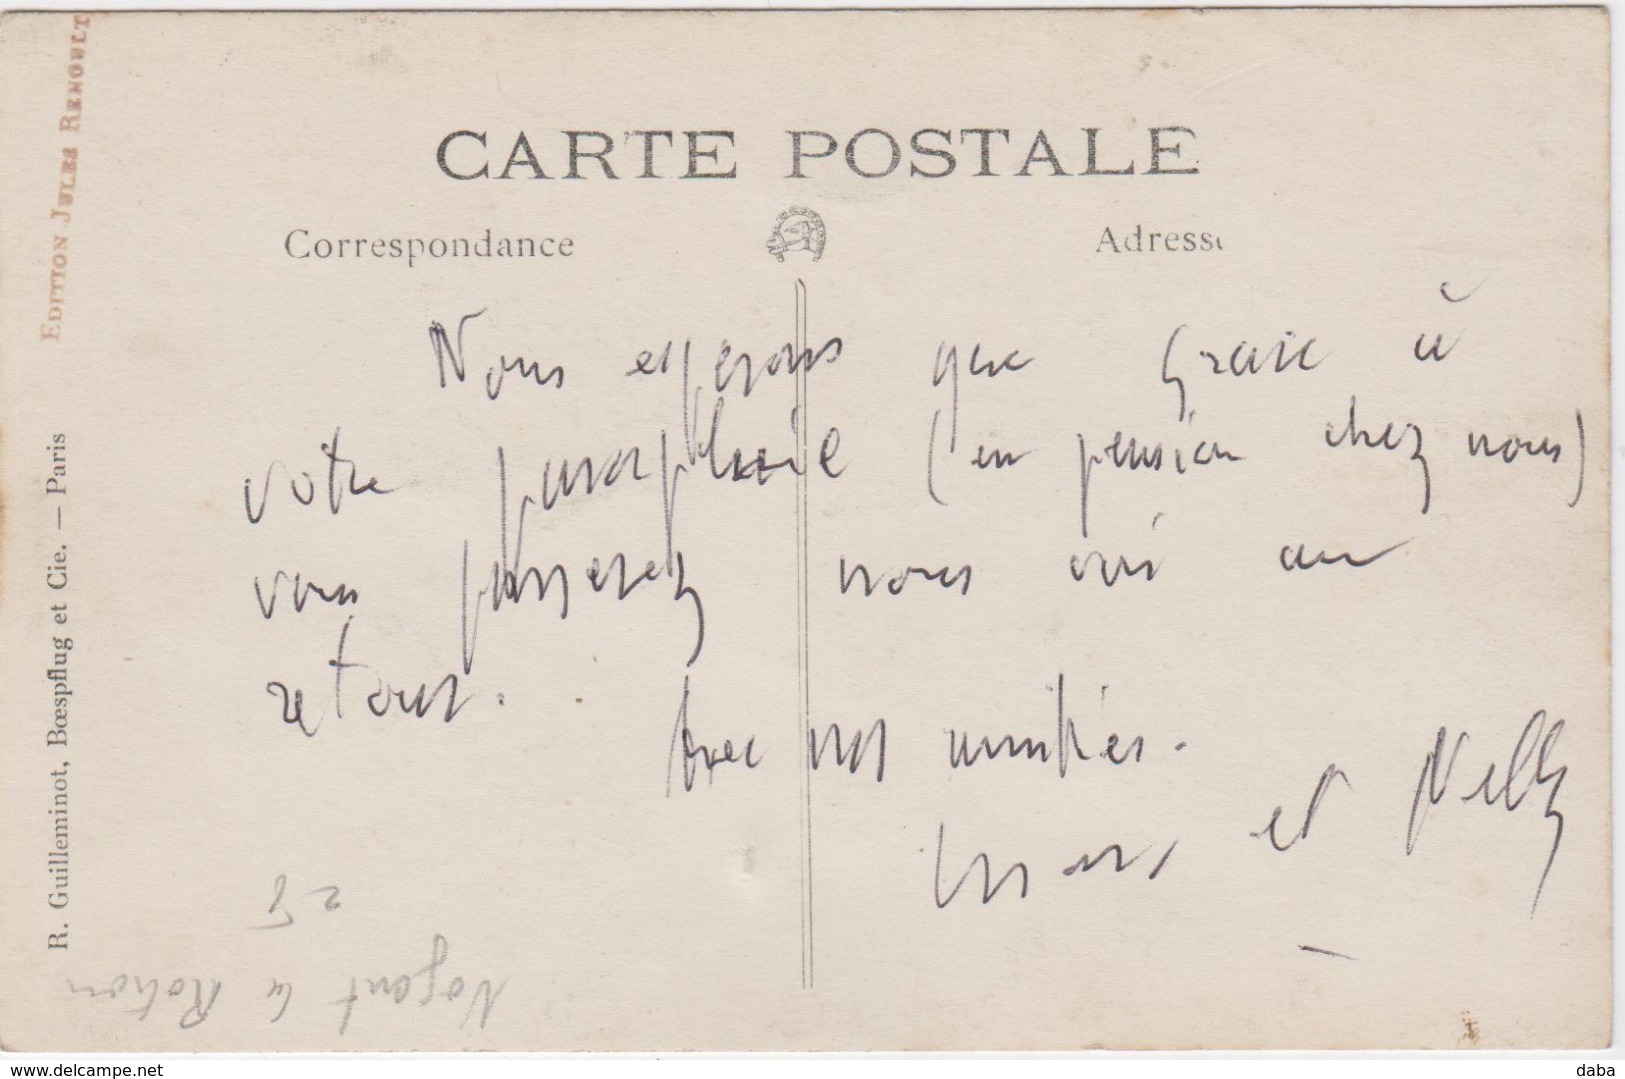 CARTE POSTALE
Correspondance
Adresse
EDITION JULES RENOULT
R. Guilleminot, Bœspflug et Cie. — Paris
Nous esperons que Grace à
votre parapluie (en pension chez nous)
vous passerez nous voir au
retour.
Avec nos amitiés.
et Nelly
28
Nogent le Rotrou
www.delcampe.net
daba